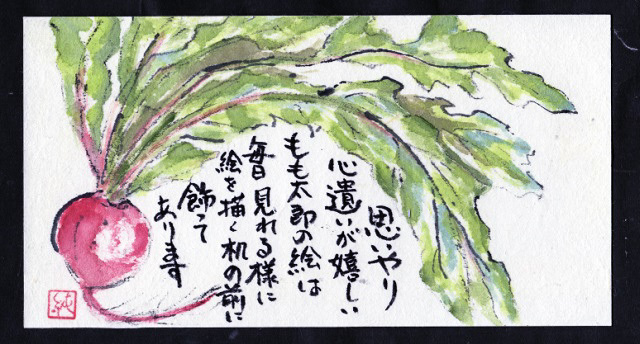 思いやり
心遣いが嬉しい
もも太郎の絵は
毎日見れる様に
絵を描く机の前に
飾って
あります
純